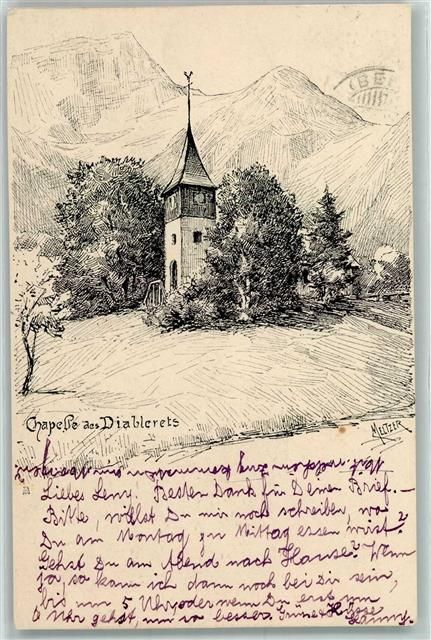 (BE
Chapelle des Diablerets
MELTZER
Liebes Leny! Besten Dank für Deinen Brief. —
Bitte, willst Du mir noch schreiben, wo
Du am Montag zu Mittag essen wirst?
Gehst Du am Abend nach Hause? Wenn
ja, so kann ich dann noch bei Dir sein,
bis um 5 Uhr, oder wenn Du erst um
6 Uhr gehst, um so besser. Grüsse & Küsse